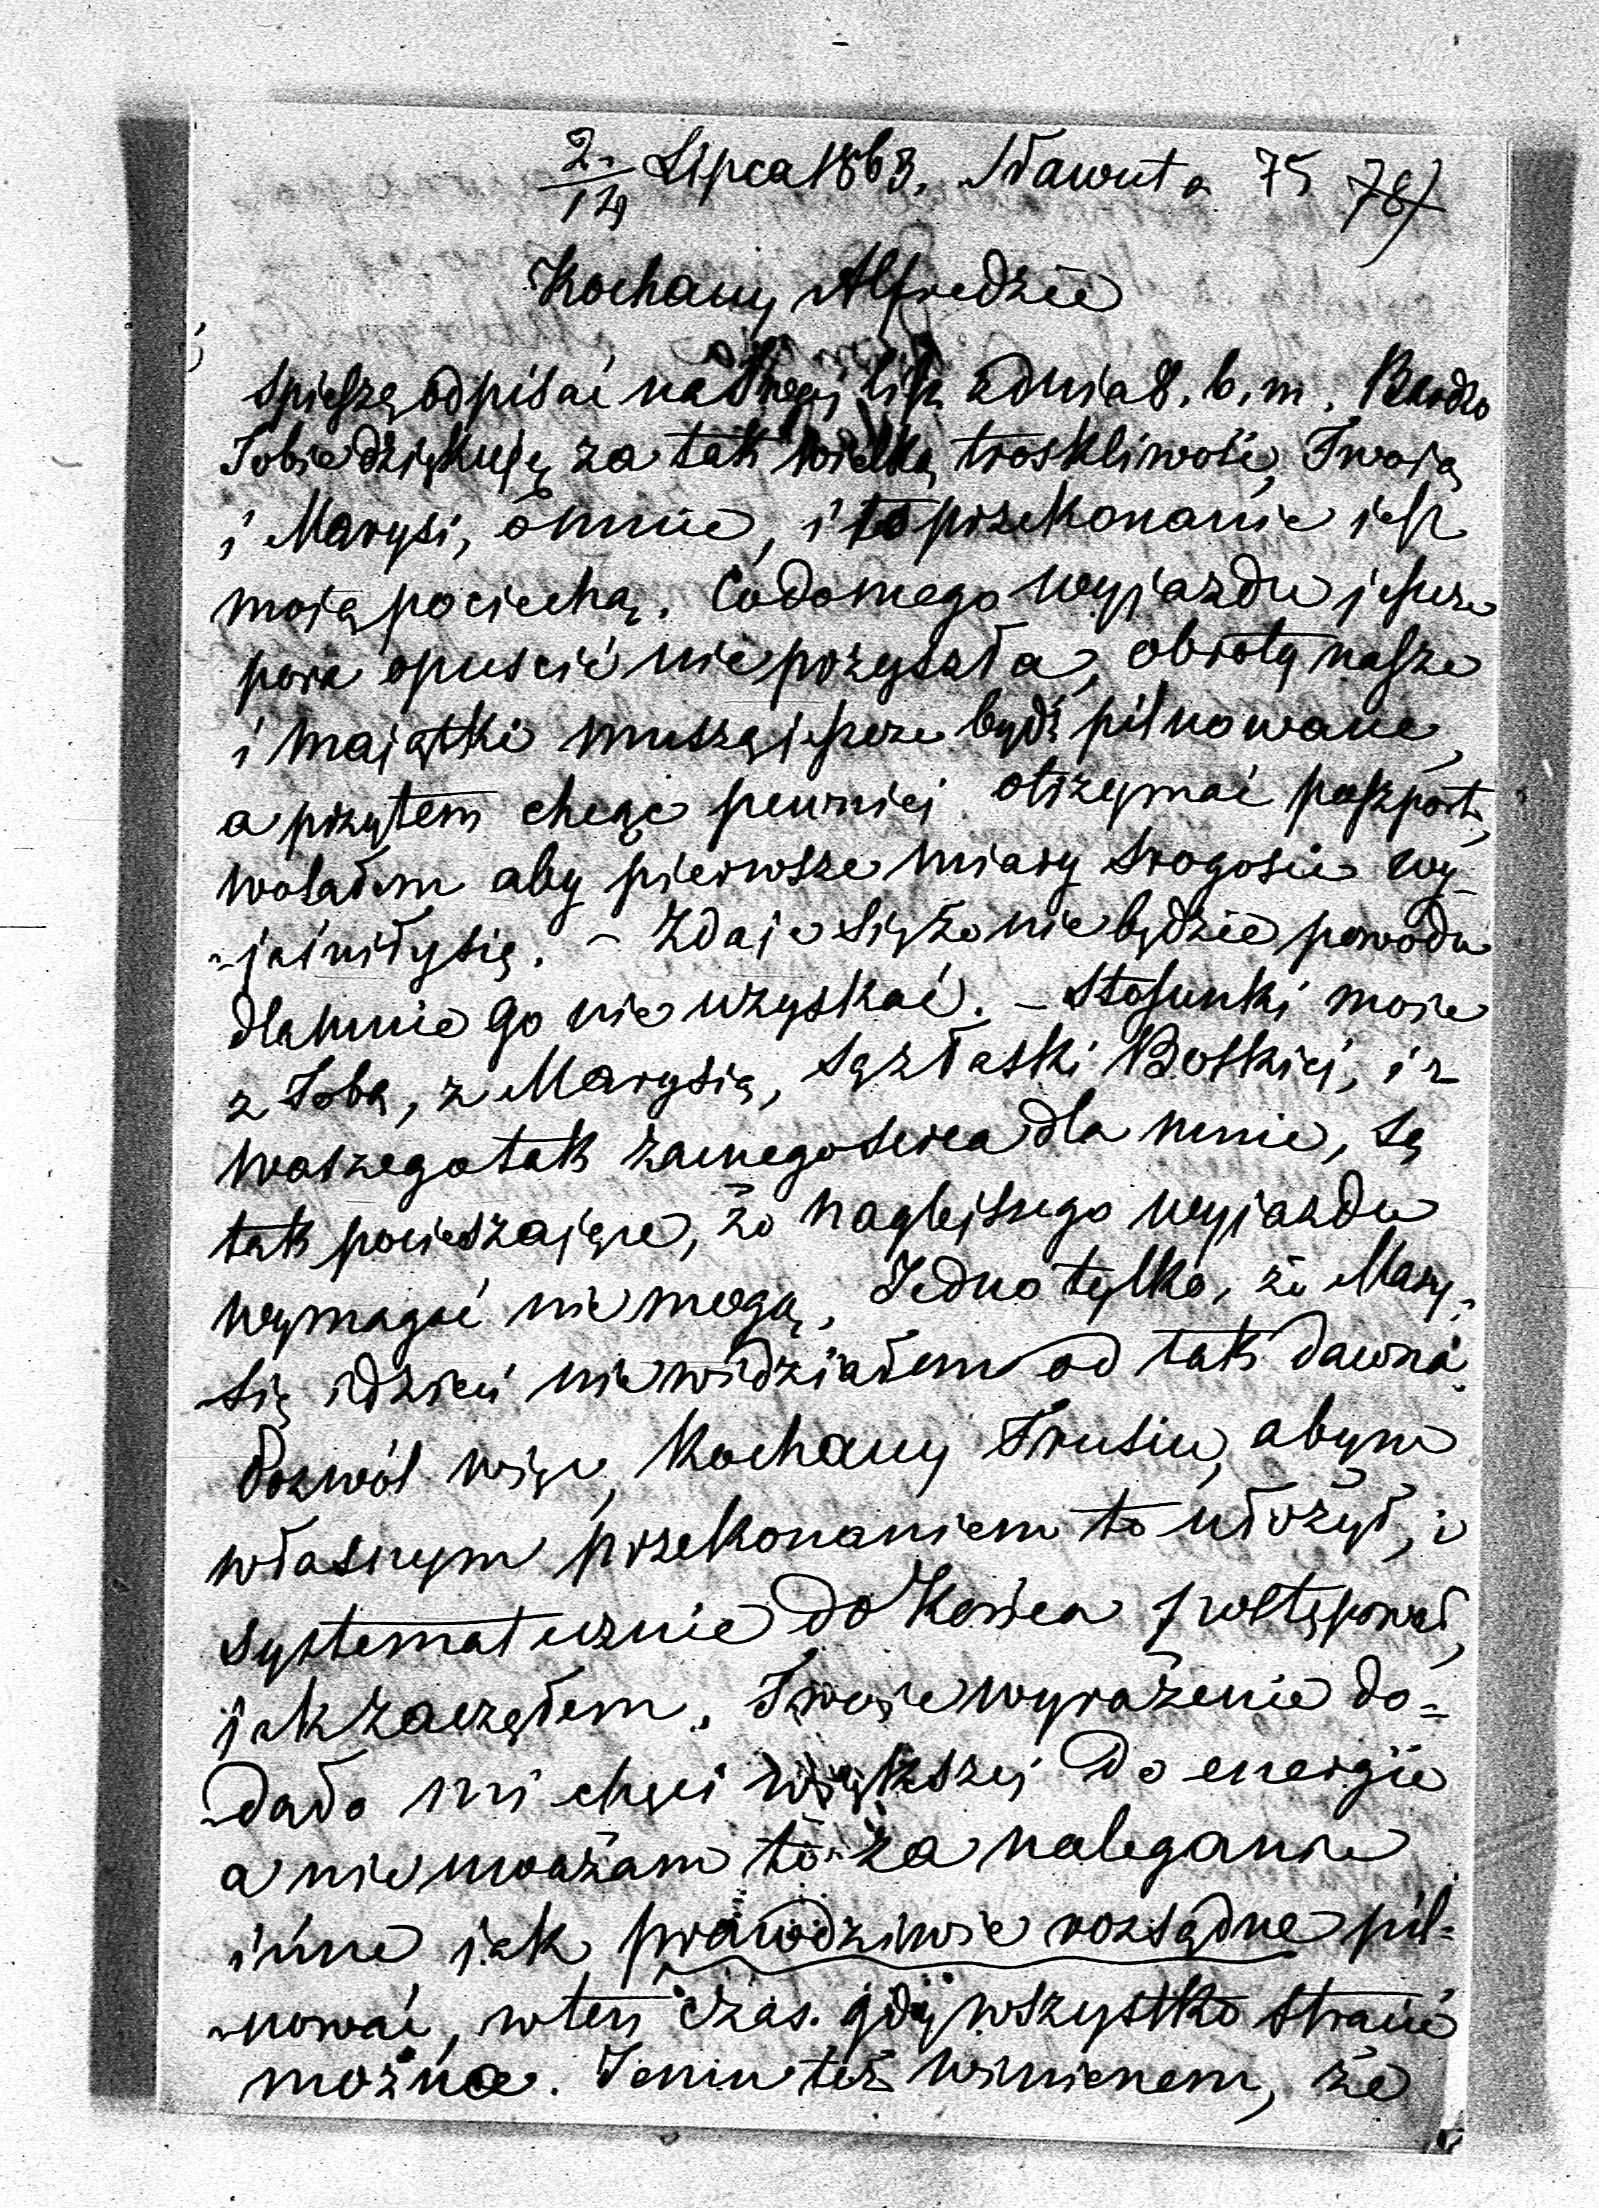 2/14 Lipca 1863. Sławuta 75 78)
Kochany Alfredzie
spieszę odpisać na Twój list z dnia 8. b. m. Bardzo
Tobie dziękuję za tak wielką troskliwość, Twoją
i Marysi, o mnie, i to przekonanie jest
moją pociechą. Co do mego wyjazdu jeszcze
pora opuścić nie przyszła, obroty nasze
i majątki muszą jeszcze bydź pilnowane,
a przytem chcąc pewniej otrzymać paszport,
wolałem aby pierwsze miary srogości wy-
-jaśniły się. - Zdaje się że nie będzie powodu
dla mnie go nie uzyskać. - Stosunki moje
z Tobą, z Marysią, są z łaski Boskiej, i z
waszego tak zacnego serca dla mnie, są
tak pocieszające, że naglejszego wyjazdu
wymagać nie mogą. Jedno tylko, że Mary-
-się i dzieci nie widziałem od tak dawna.
Pozwól więc, kochany Frusiu, abym
własnym przekonaniem to ułożył, i
systematycznie do końca postępował,
jak zacząłem. Twoje wyrażenie do=
-dało mi chęci większej do energie
a nie uważam to za naleganie
inne jak prawdziwie rozsądne pil=
-nować, w ten czas gdy wszystko stracić
można. Temu też winienem, że